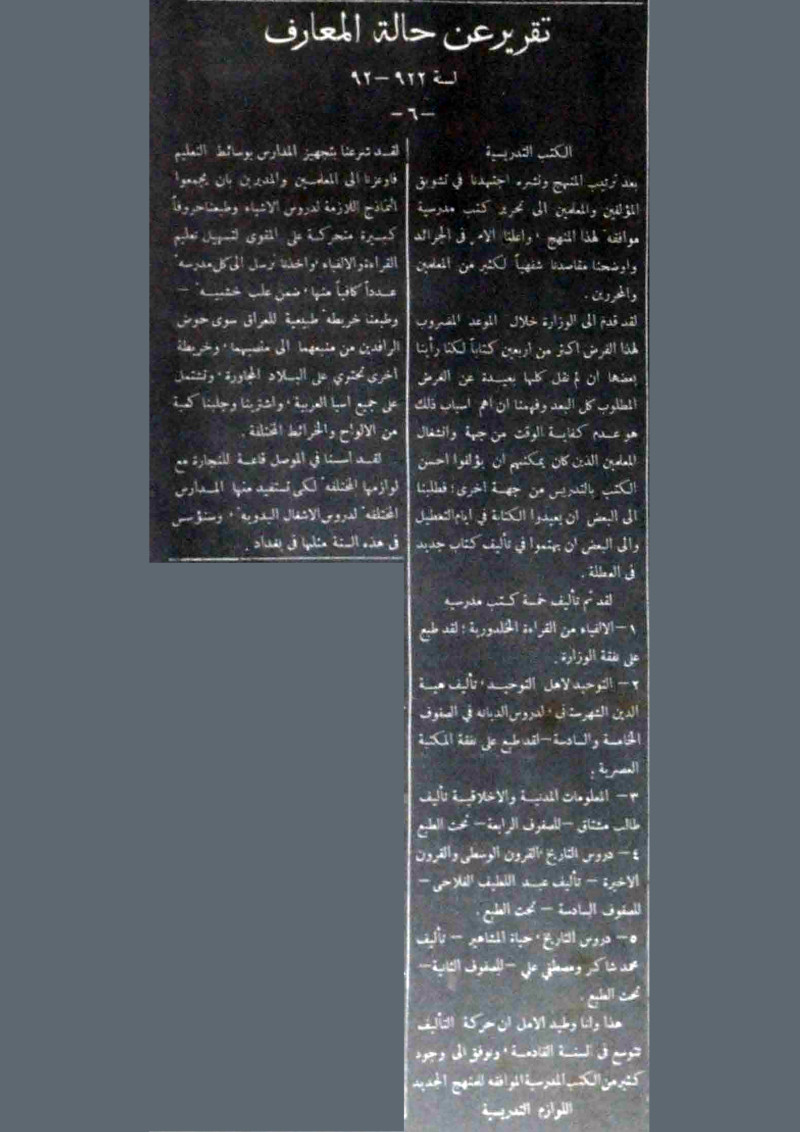 تقرير عن حالة المعارف
لسنة ٩٢٢ — ٩٢
— ٦ —
الكتب التدريسية
بعد ترتيب المنهج ونشره اجتهدنا في تشويق
المؤلفين والمعلمين الى تحرير كتب مدرسية
موافقه لهذا المنهج ، واعلنا الامر فى الجرائد
واوضحنا مقاصدنا شفهياً لكثير من المعلمين
والمحررين .
لقد قدم الى الوزارة خلال الموعد المضروب
لهذا الغرض اكثر من اربعين كتاباً لكنا رأينا
بعضها ان لم نقل كلها بعيدة عن الغرض
المطلوب كل البعد وفهمنا ان اهم اسباب ذلك
هو عدم كفاية الوقت من جهة وانشغال
المعلمين الذين كان يمكنهم ان يؤلفوا احسن
الكتب بالتدريس من جهة اخرى ؛ فطلبنا
الى البعض ان يعيدوا الكتابة في ايام التعطيل
والى البعض ان يهتموا في تأليف كتاب جديد
فى العطلة .
لقد تم تأليف خمسة كتب مدرسيه
١ — الالفباء من القراءة الخلدورية ؛ لقد طبع
على نفقة الوزارة .
٢ — التوحيد لاهل التوحيد ، تأليف هبة
الدين الشهرستانى ، لدروس الديانه في الصفوف
الخامسة والسادسة — لقد طبع على نفقة المكتبة
العصرية .
٣ — المعلومات المدنية والاخلاقية تأليف
طالب مشتاق — للصفوف الرابعة — تحت الطبع
٤ — دروس التاريخ ، القرون الوسطى والقرون
الاخيرة — تأليف عبد اللطيف الفلاحي —
للصفوف السادسة — تحت الطبع .
٥ — دروس التاريخ ، حياة المشاهير — تأليف
محمد شاكر ومصطفى علي — للصفوف الثانية —
تحت الطبع .
هذا وانا وطيد الامل ان حركة التأليف
تتوسع فى السنة القادمة ، ونوفق الى وجود
كثير من الكتب المدرسية الموافقه للمنهج الجديد
اللوازم التدريسية
لقد شرعنا بتجهيز المدارس بوسائط التعليم
فاوعزنا الى المعلمين والمديرين بان يجمعوا
النماذج اللازمة لدروس الاشياء وطبعنا حروفاً
كبيرة متحركة على المقوى لتسهيل تعليم
القراءة والالفباء ، واخذنا نرسل الى كل مدرسه
عدداً كافياً منها ، ضمن علب خشبية —
وطبعنا خريطه طبيعية للعراق سوى حوض
الرافدين من منبعهما الى منصبهما ، وخريطة
اخرى تحتوي على البلاد المجاورة ، وتشتمل
على جميع اسيا العربية ، واشترينا وجلبنا كمية
من الالواح والخرائط المختلفة .
لقد اسسنا في الموصل قاعة للنجارة مع
لوازمها المختلفه لكى تستفيد منها المدارس
المختلفه لدروس الاشغال اليدويه ، وسنؤسس
في هذه السنة مثلها فى بغداد .